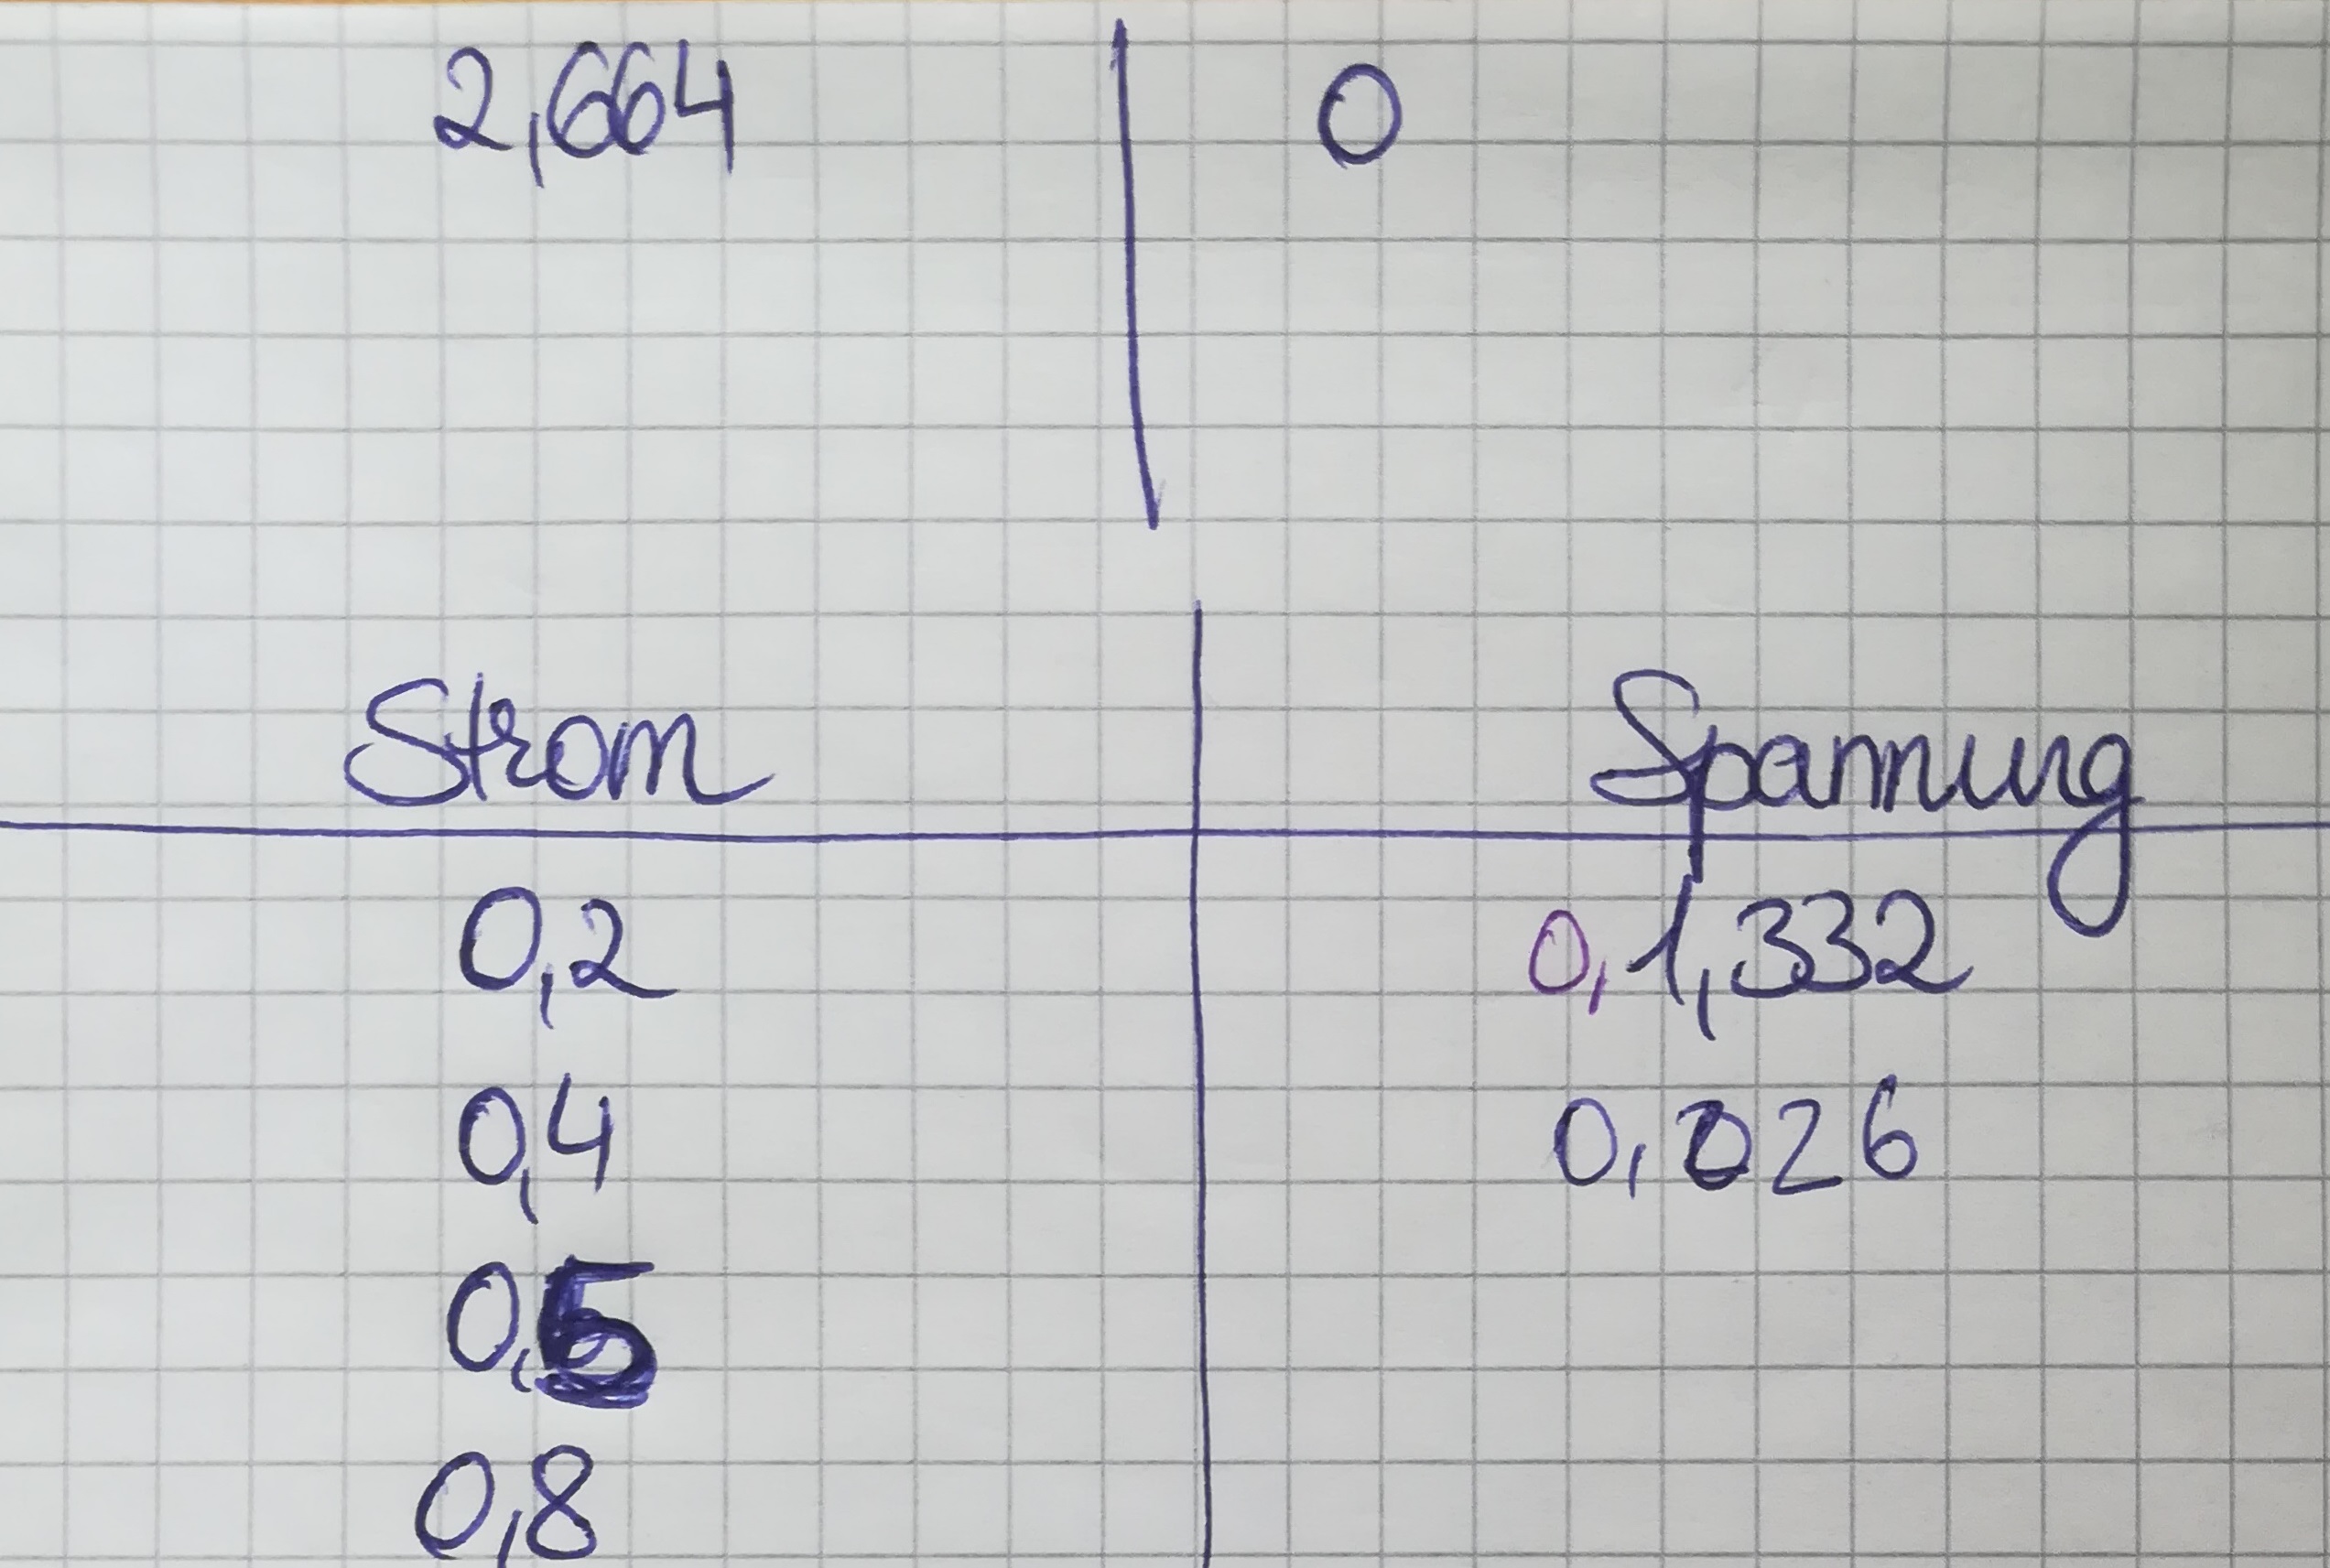 2,664 0
Strom Spannung
0,2 0,1,332
0,4 0,026
0,5
0,8